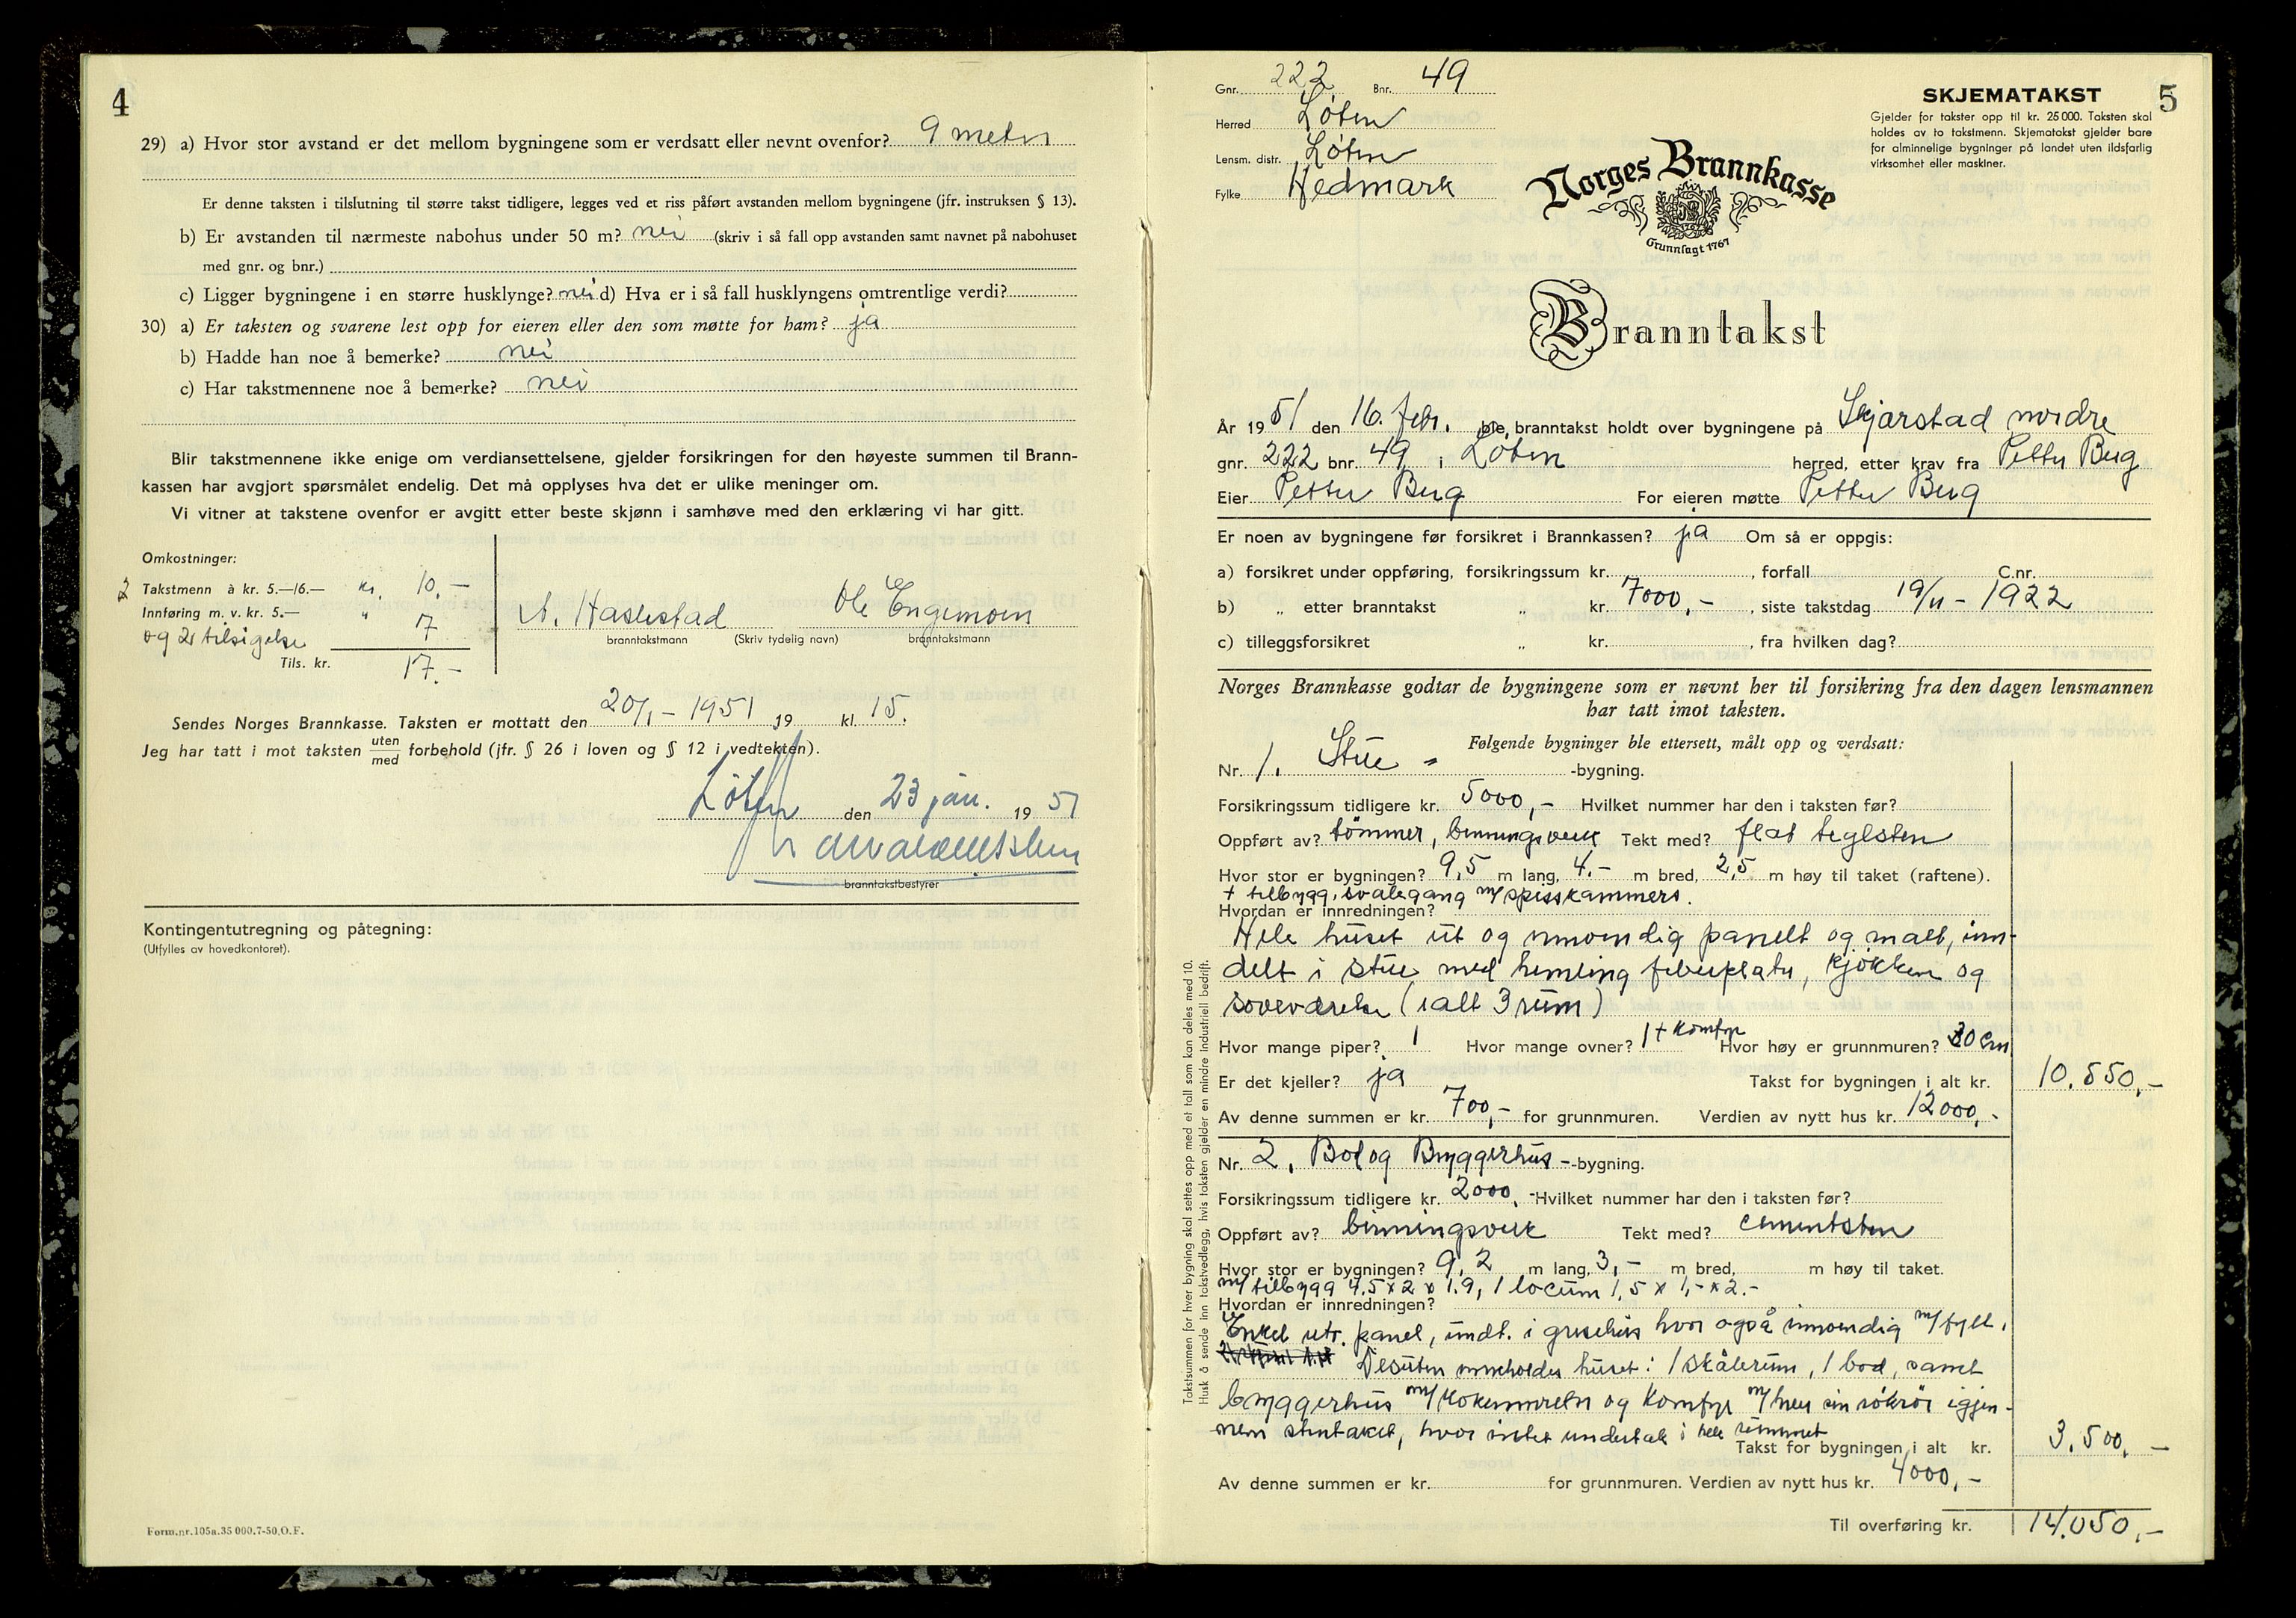 4
29) a) Hvor stor avstand er det mellom bygningene som er verdsatt eller nevnt ovenfor? 9 meter
Er denne taksten i tilslutning til større takst tidligere, legges ved et riss påført avstanden mellom bygningene (jfr. instruksen § 13).
b) Er avstanden til nærmeste nabohus under 50 m? nei (skriv i så fall opp avstanden samt navnet på nabohuset
med gnr. og bnr.)
c) Ligger bygningene i en større husklynge? nei d) Hva er i så fall husklyngens omtrentlige verdi?
30) a) Er taksten og svarene lest opp for eieren eller den som møtte for ham? ja
b) Hadde han noe å bemerke? nei
c) Har takstmennene noe å bemerke? nei
Blir takstmennene ikke enige om verdiansettelsene, gjelder forsikringen for den høyeste summen til Brann-
kassen har avgjort spørsmålet endelig. Det må opplyses hva det er ulike meninger om.
Vi vitner at takstene ovenfor er avgitt etter beste skjønn i samhøve med den erklæring vi har gitt.
Omkostninger:
2 Takstmenn à kr. 5.—/6.— kr. 10.-
Innføring m. v. kr. 5.— " 7
og 2 tilsigelse
Tils. kr. 17.-
A. Haslestad Ole Engemoen
branntakstmann (Skriv tydelig navn) branntakstmann
Sendes Norges Brannkasse. Taksten er mottatt den 20/1 - 1951 19 kl. 15.
Jeg har tatt i mot taksten uten/med forbehold (jfr. § 26 i loven og § 12 i vedtekten).
Løten den 23 jan. 19 51
branntakstbestyrer
Kontingentutregning og påtegning:
(Utfylles av hovedkontoret).
Form.nr.105a.35 000.7-50.O.F.
5
Gnr. 222 Bnr. 49
Herred Løten
Lensm. distr. Løten
Fylke Hedmark
SKJEMATAKST
Gjelder for takster opp til kr. 25 000. Taksten skal
holdes av to takstmenn. Skjematakst gjelder bare
for alminnelige bygninger på landet uten ildsfarlig
virksomhet eller maskiner.
Norges Brannkasse
Grunnlagt 1767
Branntakst
År 19 51 den 16. febr. ble branntakst holdt over bygningene på Skjarstad nordre
gnr. 222 bnr. 49 i Løten herred, etter krav fra Petter Berg
Eier Petter Berg For eieren møtte Petter Berg
Er noen av bygningene før forsikret i Brannkassen? ja Om så er oppgis:
a) forsikret under oppføring, forsikringssum kr. , forfall C.nr.
b) „ etter branntakst „ kr. 7000,- , siste takstdag 19/11 - 1922
c) tilleggsforsikret „ kr. , fra hvilken dag?
Norges Brannkasse godtar de bygningene som er nevnt her til forsikring fra den dagen lensmannen
har tatt imot taksten.
Følgende bygninger ble ettersett, målt opp og verdsatt:
Nr. 1. Stue - -bygning.
Forsikringssum tidligere kr. 5000,- Hvilket nummer har den i taksten før?
Oppført av? tömmer, binningsverk Tekt med? flat teglsten
Hvor stor er bygningen? 9,5 m lang, 4,- m bred, 2,5 m høy til taket (raftene).
+ tilbygg, svalegang m/ spisskammers.
Hvordan er innredningen?
Hele huset ut og innvendig panelt og malt, inn-
delt i stue med himling fiberplater, kjøkken og
soveværelse (ialt 3 rum)
Hvor mange piper? 1 Hvor mange ovner? 1 + Komfyr Hvor høy er grunnmuren? 30 cm
Er det kjeller? ja Takst for bygningen i alt kr. 10.550,-
Av denne summen er kr. 700,- for grunnmuren. Verdien av nytt hus kr. 12000,-
Nr. 2. Bod og Bryggerhus - -bygning.
Forsikringssum tidligere kr. 2000,- Hvilket nummer har den i taksten før?
Oppført av? binningsverk Tekt med? cementsten
Hvor stor er bygningen? 9,2 m lang, 3,- m bred, m høy til taket.
m/ tilbygg 4.5 x 2 x 1.9, 1 locum 1,5 x 1,- x 2.-
Hvordan er innredningen?
Enkel utv. panel, undt. i grisehus hvor også innvendig m/ fyll.
Desuten inneholder huset: 1 skålerum, 1 bod, samt
bryggerhus m/ kokeinnretn og Komfyr m/ hver sin rökrör igjen-
nem stentaket, hvor intet undertak i hele rummet
Takst for bygningen i alt kr. 3.500,-
Av denne summen er kr. for grunnmuren. Verdien av nytt hus kr. 4000,-
Til overføring kr. 14.050,-
Takstsummen for hver bygning skal settes opp med et tall som kan deles med 10.
Husk å sende inn takstvedlegg, hvis taksten gjelder en mindre industriell bedrift.